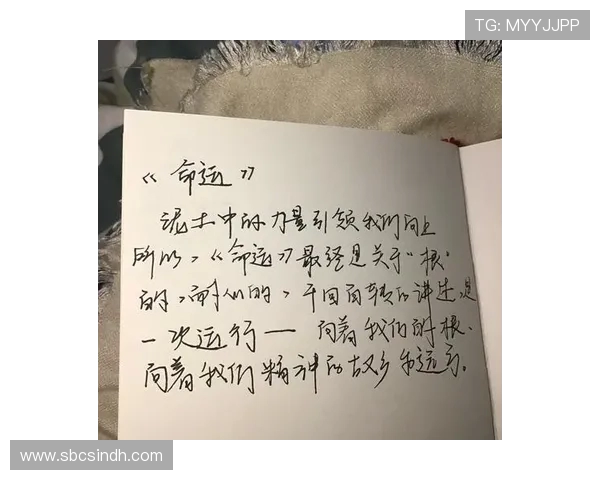 TG: MYYJJPP
《命运》
泥土中的力量引领我们向上
所以,《命运》最终是关于“根”
的,耐人的,千回百转的讲述,是
一次运行— 向着我们的根、
向着我们精神的故乡和远方。
www.sbcsindh.com